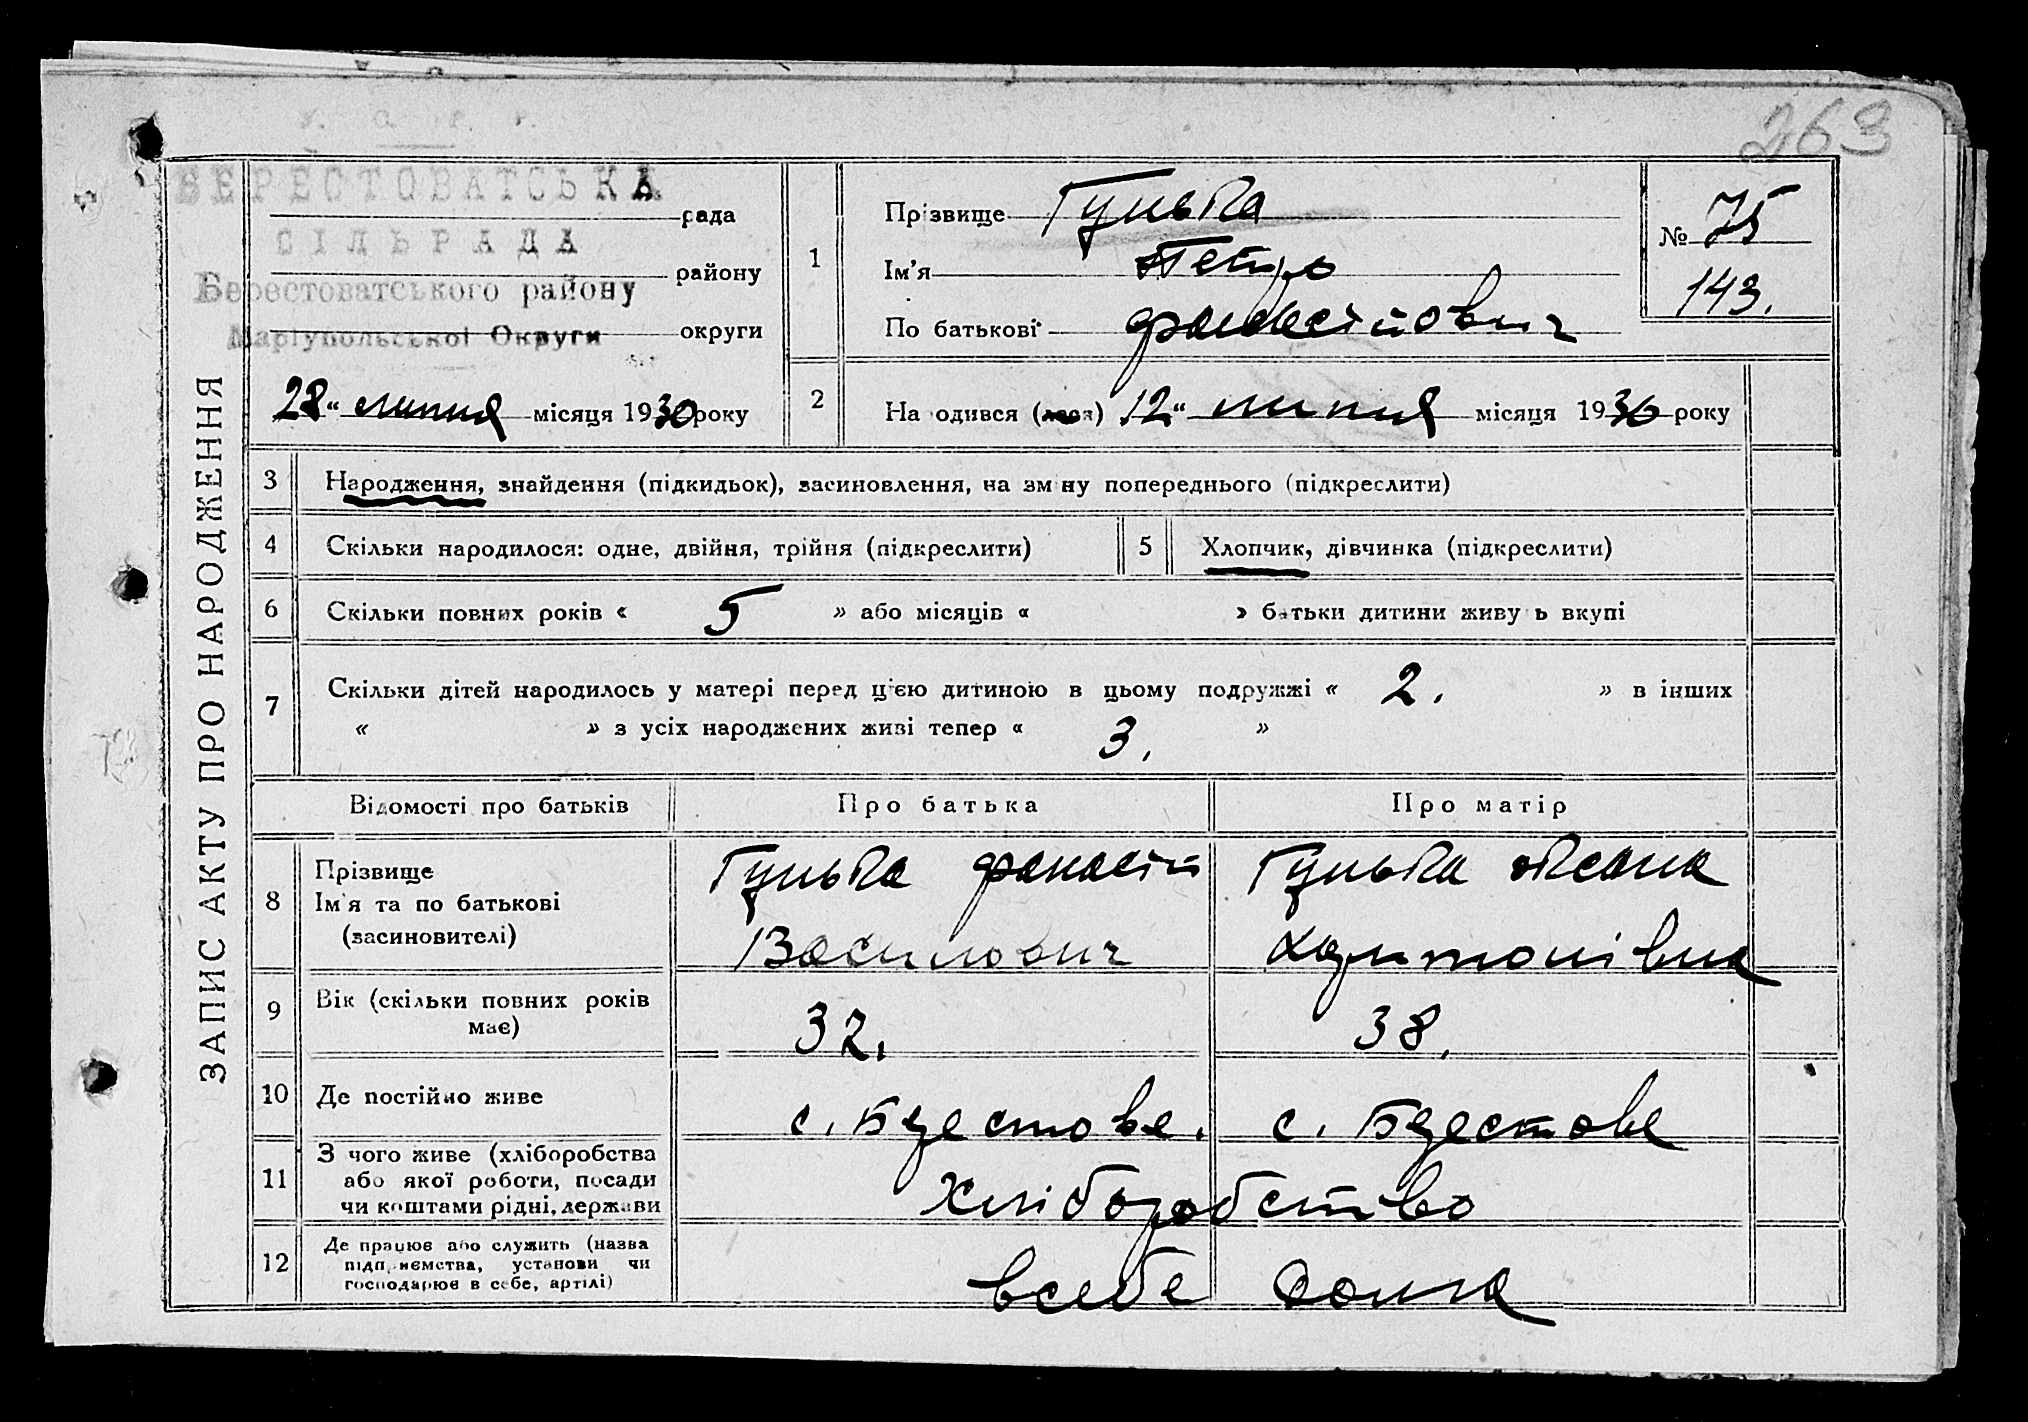 263
БЕРЕСТОВАТСЬКА
рада
СІЛЬРАДА
району
Берестоватського району
округи
Маріупольської Округи
28 „ липня місяця 1930 року
1
Прізвище Гулька
Ім’я Петро
По батькові Фанасійович
№ 75
143.
2
Народився (лася) 12 „ липня місяця 1930 року
ЗАПИС АКТУ ПРО НАРОДЖЕННЯ
3 Народження, знайдення (підкидьок), засиновлення, на зміну попереднього (підкреслити)
4 Скільки народилося: одне, двійня, трійня (підкреслити)
5 Хлопчик, дівчинка (підкреслити)
6 Скільки повних років « 5 » або місяців « » батьки дитини живуть вкупі
7 Скільки дітей народилось у матері перед цією дитиною в цьому подружжі « 2. » в інших
« » з усіх народжених живі тепер « 3. »
Відомості про батьків Про батька Про матір
8 Прізвище
Ім’я та по батькові
(засиновителі)
Гулька Фанасій
Василович
Гулька Оксана
Харитонівна
9 Вік (скільки повних років
має)
32.
38.
10 Де постійно живе
с. Берестове.
с. Берестове
11 З чого живе (хліборобства
або якої роботи, посади
чи коштами рідні, держави
Хліборобство
12 Де працює або служить (назва
підприємства, установи чи
господарює в себе, артілі)
всебе дома